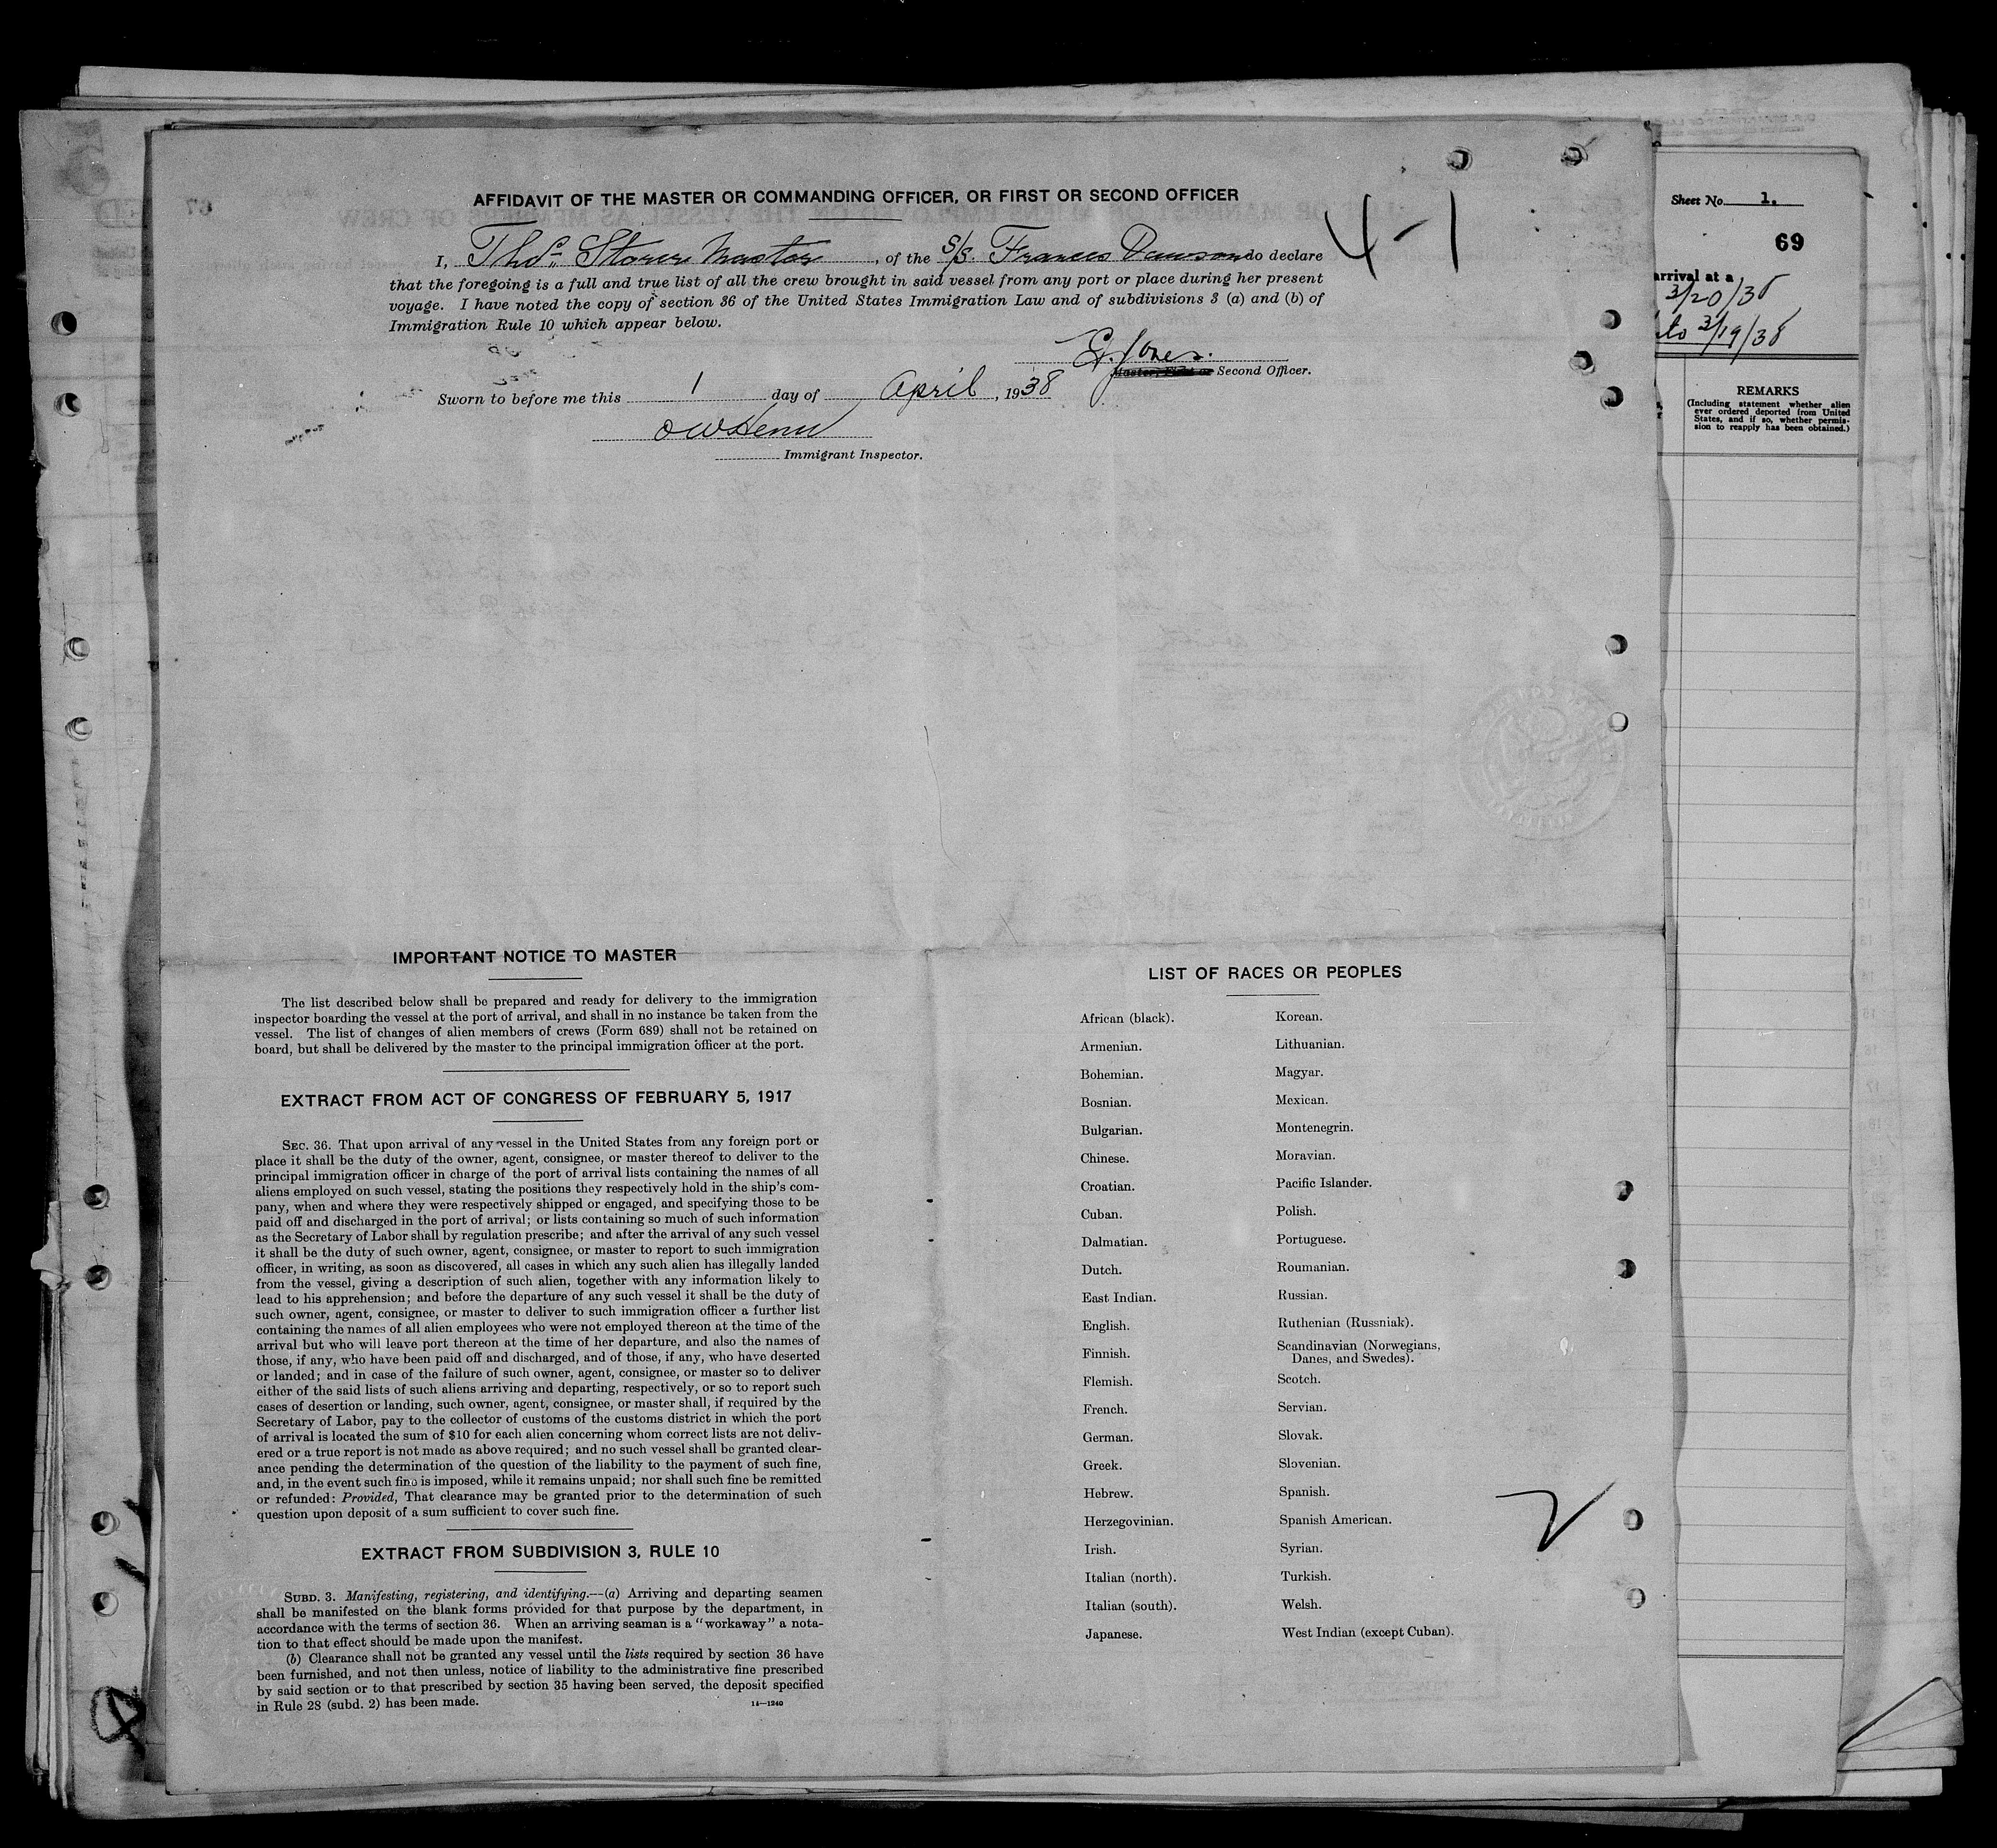 AFFIDAVIT OF THE MASTER OR COMMANDING OFFICER, OR FIRST OR SECOND OFFICER
4-1
I, Thos. Storer Master, of the S/S. Frances Dawson do declare
that the foregoing is a full and true list of all the crew brought in said vessel from any port or place during her present
voyage. I have noted the copy of section 36 of the United States Immigration Law and of subdivisions 3 (a) and (b) of
Immigration Rule 10 which appear below.
E. Jones.
Master, First or Second Officer.
Sworn to before me this 1 day of April, 1938
Immigrant Inspector.
Sheet No. 1.
69
arrival at a
3/20/38
to 3/19/38
REMARKS
(Including statement whether alien
ever ordered deported from United
States, and if so, whether permis-
sion to reapply has been obtained.)
IMPORTANT NOTICE TO MASTER
The list described below shall be prepared and ready for delivery to the immigration
inspector boarding the vessel at the port of arrival, and shall in no instance be taken from the
vessel. The list of changes of alien members of crews (Form 689) shall not be retained on
board, but shall be delivered by the master to the principal immigration officer at the port.
EXTRACT FROM ACT OF CONGRESS OF FEBRUARY 5, 1917
SEC. 36. That upon arrival of any vessel in the United States from any foreign port or
place it shall be the duty of the owner, agent, consignee, or master thereof to deliver to the
principal immigration officer in charge of the port of arrival lists containing the names of all
aliens employed on such vessel, stating the positions they respectively hold in the ship's com-
pany, when and where they were respectively shipped or engaged, and specifying those to be
paid off and discharged in the port of arrival; or lists containing so much of such information
as the Secretary of Labor shall by regulation prescribe; and after the arrival of any such vessel
it shall be the duty of such owner, agent, consignee, or master to report to such immigration
officer, in writing, as soon as discovered, all cases in which any such alien has illegally landed
from the vessel, giving a description of such alien, together with any information likely to
lead to his apprehension; and before the departure of any such vessel it shall be the duty of
such owner, agent, consignee, or master to deliver to such immigration officer a further list
containing the names of all alien employees who were not employed thereon at the time of the
arrival but who will leave port thereon at the time of her departure, and also the names of
those, if any, who have been paid off and discharged, and of those, if any, who have deserted
or landed; and in case of the failure of such owner, agent, consignee, or master so to deliver
either of the said lists of such aliens arriving and departing, respectively, or so to report such
cases of desertion or landing, such owner, agent, consignee, or master shall, if required by the
Secretary of Labor, pay to the collector of customs of the customs district in which the port
of arrival is located the sum of $10 for each alien concerning whom correct lists are not deliv-
ered or a true report is not made as above required; and no such vessel shall be granted clear-
ance pending the determination of the question of the liability to the payment of such fine,
and, in the event such fine is imposed, while it remains unpaid; nor shall such fine be remitted
or refunded: Provided, That clearance may be granted prior to the determination of such
question upon deposit of a sum sufficient to cover such fine.
EXTRACT FROM SUBDIVISION 3, RULE 10
SUBD. 3. Manifesting, registering, and identifying.—(a) Arriving and departing seamen
shall be manifested on the blank forms provided for that purpose by the department, in
accordance with the terms of section 36. When an arriving seaman is a "workaway" a nota-
tion to that effect should be made upon the manifest.
(b) Clearance shall not be granted any vessel until the lists required by section 36 have
been furnished, and not then unless, notice of liability to the administrative fine prescribed
by said section or to that prescribed by section 35 having been served, the deposit specified
in Rule 28 (subd. 2) has been made.
14—1240
LIST OF RACES OR PEOPLES
African (black).
Armenian.
Bohemian.
Bosnian.
Bulgarian.
Chinese.
Croatian.
Cuban.
Dalmatian.
Dutch.
East Indian.
English.
Finnish.
Flemish.
French.
German.
Greek.
Hebrew.
Herzegovinian.
Irish.
Italian (north).
Italian (south).
Japanese.
Korean.
Lithuanian.
Magyar.
Mexican.
Montenegrin.
Moravian.
Pacific Islander.
Polish.
Portuguese.
Roumanian.
Russian.
Ruthenian (Russniak).
Scandinavian (Norwegians,
Danes, and Swedes).
Scotch.
Servian.
Slovak.
Slovenian.
Spanish.
Spanish American.
Syrian.
Turkish.
Welsh.
West Indian (except Cuban).